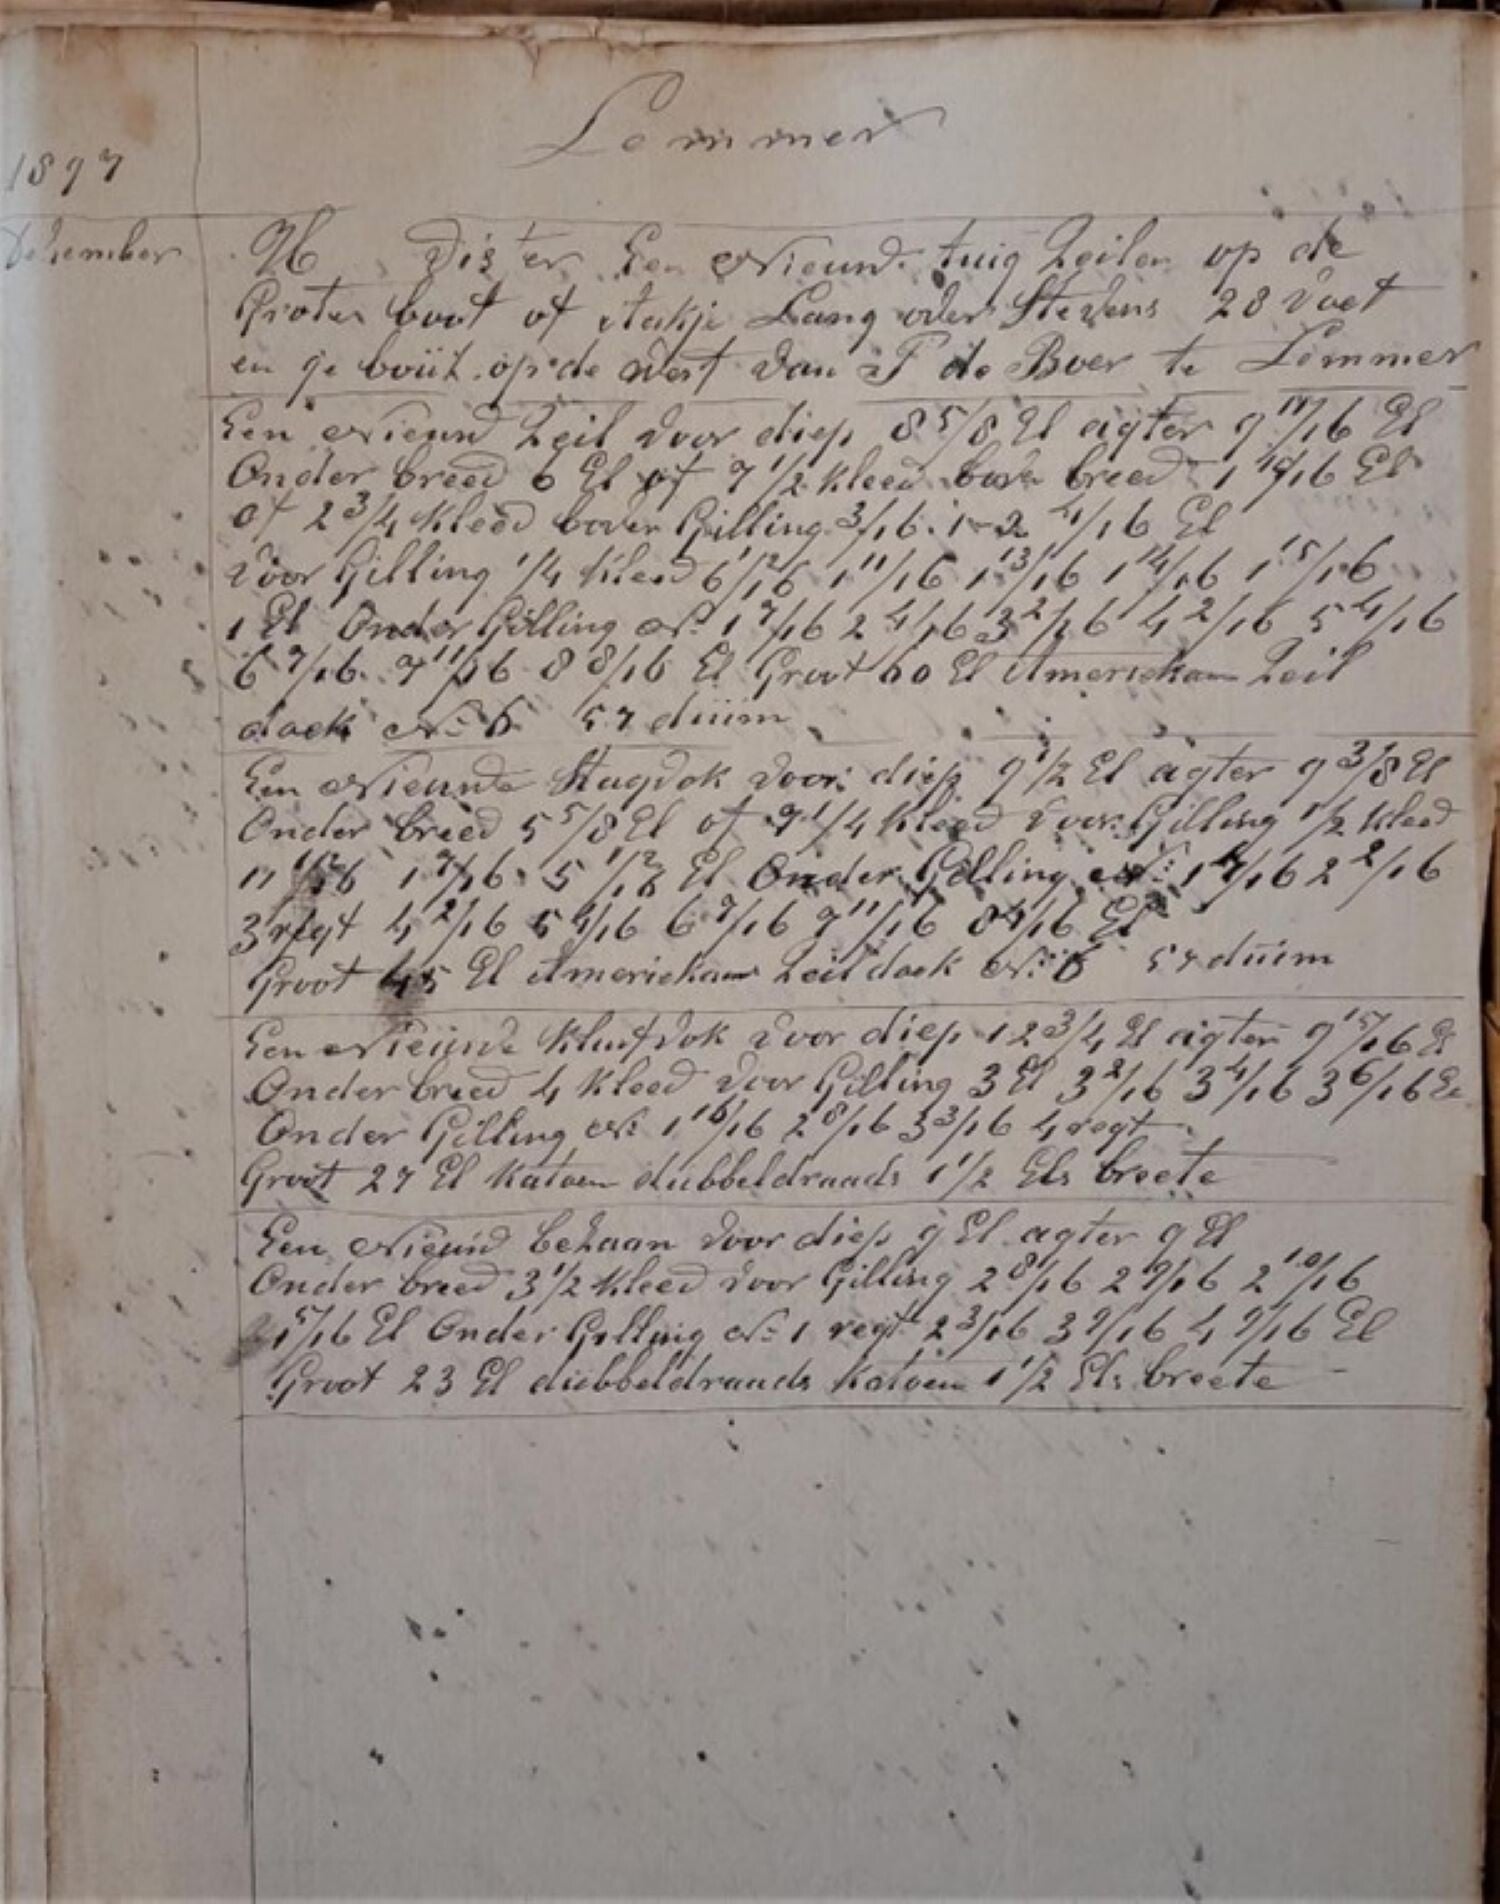 Lemmer
1897
Dehember
H Visser Een Nieuwe tuig Zeilen op de
Groten boot of Aakje Lang over Stevens 28 voet
en ge bouit op de werf van P de Boer te Lemmer
Een Nieuw Zeil voor diep 8 5/8 El agter 9 11/16 El
Onder breed 6 El of 7 1/2 kleed boven breed 1 El
of 2 3/4 kleed boven Gilling 3/16 1-2 4/16 El
voor Gilling 1/4 kleed 1 11/16 1 13/16 1 14/16 1 15/16
1 El Onder Gilling No 1 7/16 2 4/16 3 2/16 4 2/16 5 4/16
6 7/16 7 11/16 8 8/16 El Groot 60 El Ameriekaan Zeil
doek No 6 57 duim
Een Nieuwe Stagvok voor diep 9 1/2 El agter 9 3/8 El
Onder breed 5 5/8 El of 7 1/4 kleed voor Gilling 1/2 kleed
El Onder Gilling No 2 2/16
3 regt 4 2/16 5 4/16 6 7/16 7 11/16 8 4/16 El
Groot 45 El Amerikaan Zeildoek No 6 57 duim
Een Nieuwe Kluifvok voor diep 12 3/4 El agter 9 15/16 El
Onder breed 4 kleed voor Gilling 3 El 3 2/16 3 4/16 3 6/16 El
Onder Gilling No 2 8/16 3 3/16 4 regt
Groot 27 El Katoen dubbeldraads 1 1/2 Els breete
Een Nieuw beZaan voor diep 9 El agter 9 El
Onder breed 3 1/2 kleed voor Gilling 2 8/16 2 9/16 2 10/16
15/16 El Onder Gilling No 1 regt 2 3/16 3 9/16 4 9/16 El
Groot 23 El dubbeldraads Katoen 1 1/2 Els breete